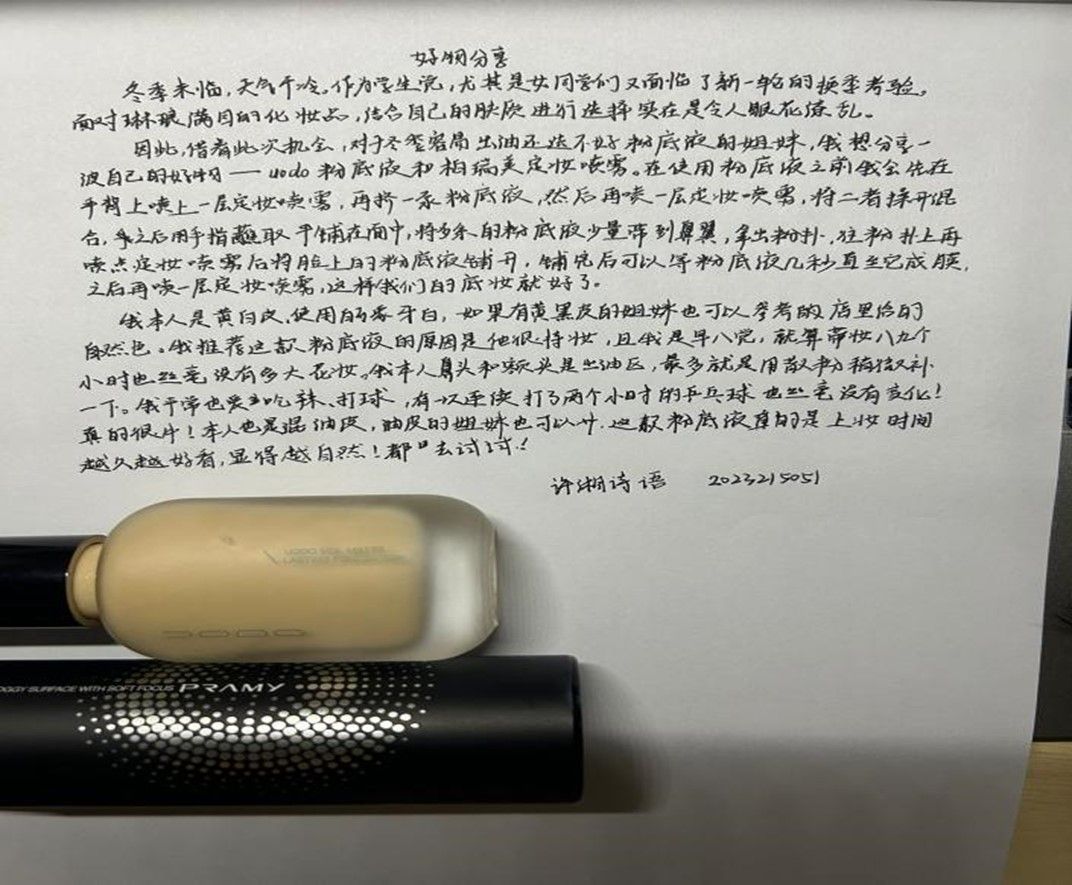 好物分享
冬季来临,天气干冷。作为学生党,尤其是女同学们又面临了新一轮的换季考验。
面对琳琅满目的化妆品,结合自己的肤质进行选择实在是令人眼花缭乱。
因此,借着此次机会,对于冬季容易出油还选不好粉底液的姐妹,我想分享一
波自己的好物——uodo粉底液和柏瑞美定妆喷雾。在使用粉底液之前我会先在
手背上喷上一层定妆喷雾,再挤一泵粉底液,然后再喷一层定妆喷雾,将二者揉开混
合,之后用手指蘸取平铺在面中,将多余的粉底液少量带到鼻翼,拿出粉扑,往粉扑上再
喷点定妆喷雾后将脸上的粉底液铺开,铺完后可以等粉底液几秒直至它成膜,
之后再喷一层定妆喷雾,这样我们的底妆就好了。
我本人是黄白皮,使用的象牙白,如果有黄黑皮的姐妹也可以参考的店里给的
自然色。我推荐这款粉底液的原因是他很持妆,且我是早八党,就算带妆八九个
小时也丝毫没有多大花妆。我本人鼻头和额头是出油区,最多就是用散粉稍微补
一下。我平常也爱吃辣、打球,有一次连续打了两个小时的乒乓球也丝毫没有变化!
真的很牛!本人也是混油皮,油皮的姐妹也可以冲.这款粉底液真的是上妆时间
越久越好看,显得越自然!都去试试!!
许湘诗语 2023215051
UODO
LASTING FOUNDATION
OGGY SURFACE WITH SOFT FOCUS PRAMY